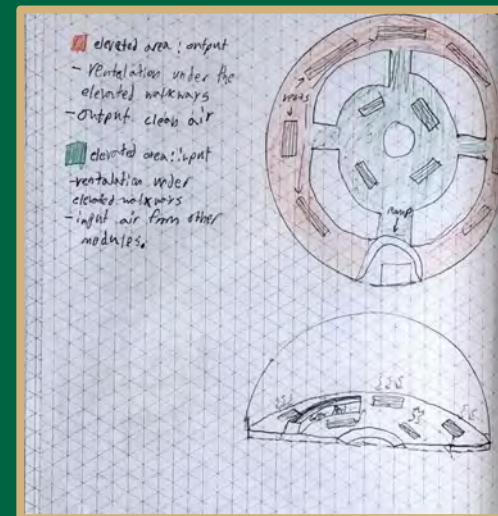 elevated area : output
- ventalation under the
elevated walkways
- output clean air
elevated area : input
- ventalation under
elevated walkways
- input air from other
modules.
vents
ramp